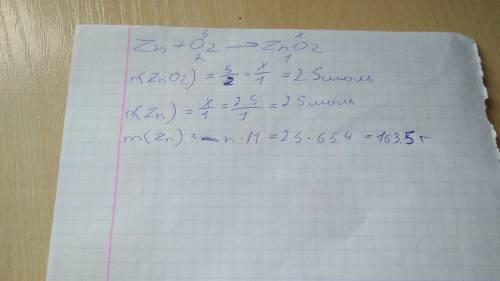 5 x
Zn + O2 → ZnO2
2 1
n(ZnO2) = 5/2 = x/1 = 2.5 моль
n(Zn) = x/1 = 2.5/1 = 2.5 моль
m(Zn) = n · M = 2.5 · 65.4 = 163.5 г